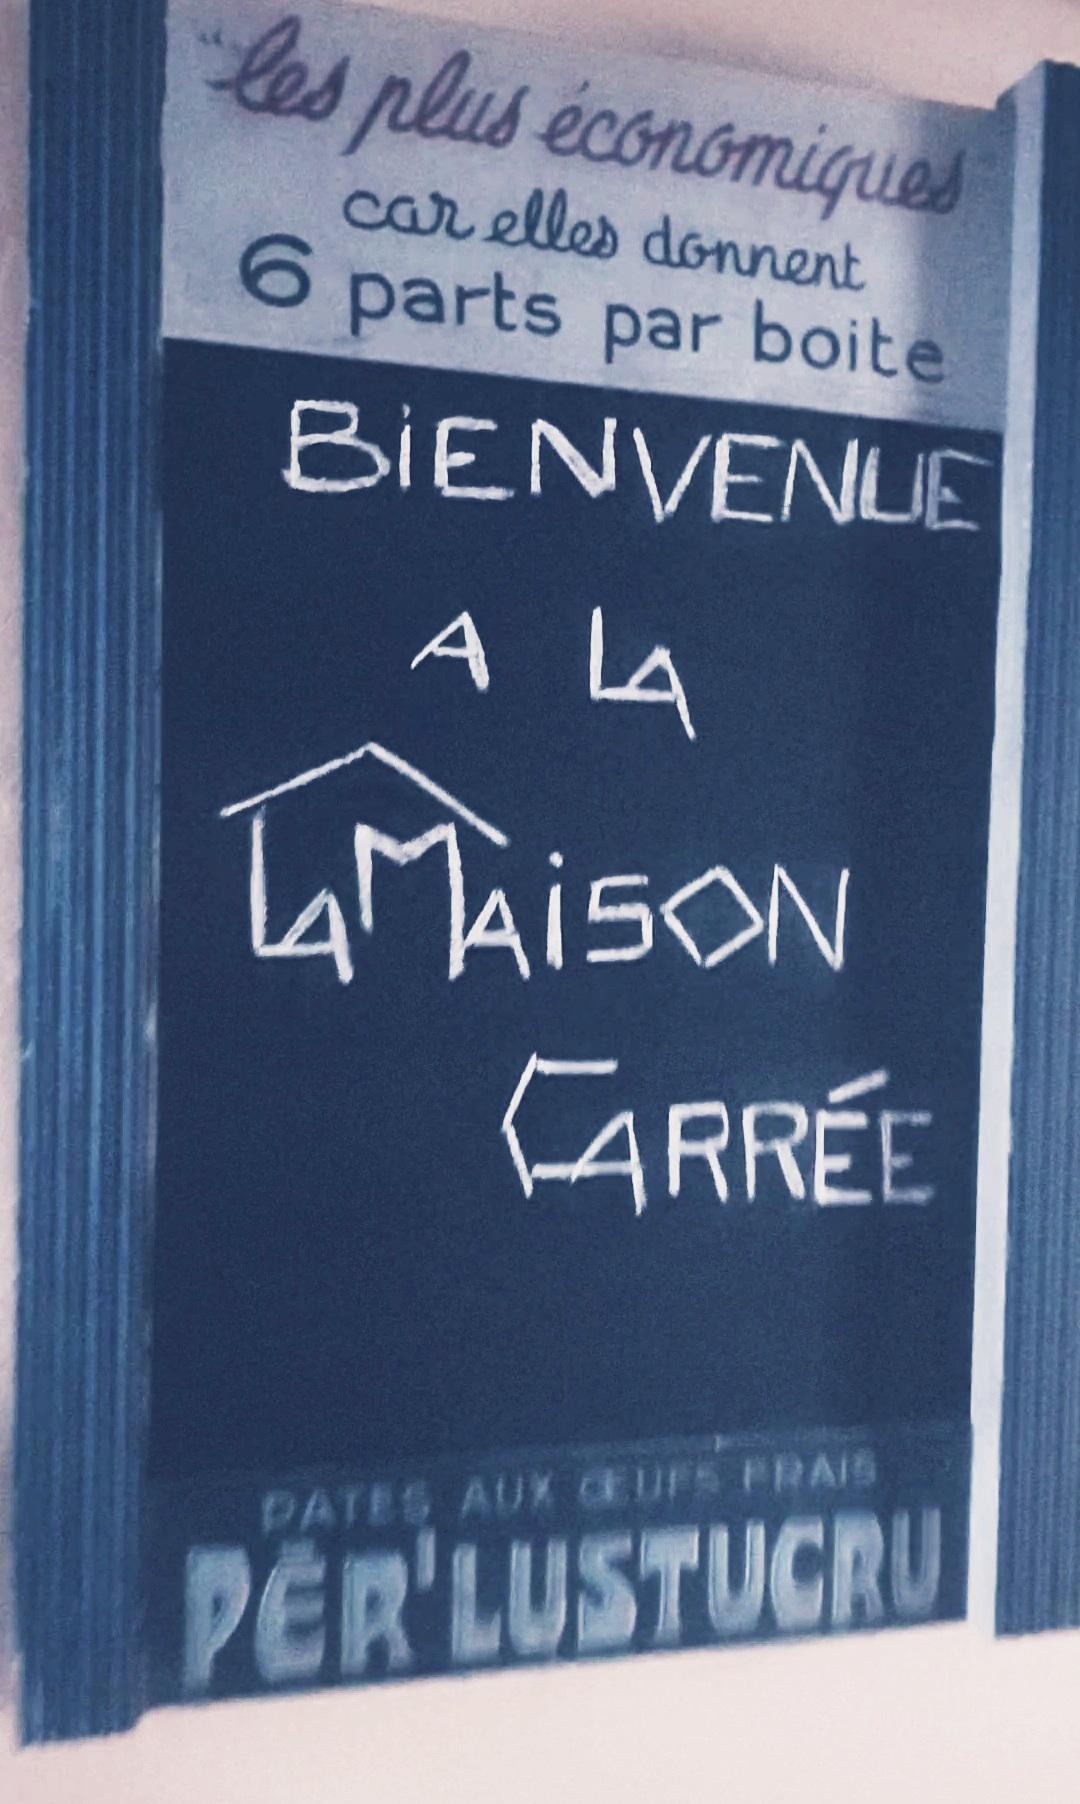 "les plus économiques
car elles donnent
6 parts par boite
BiENVENUE
A LA
LA MAiSON
CARRÉE
PATES AUX ŒUFS FRAIS
PÈR'LUSTUCRU